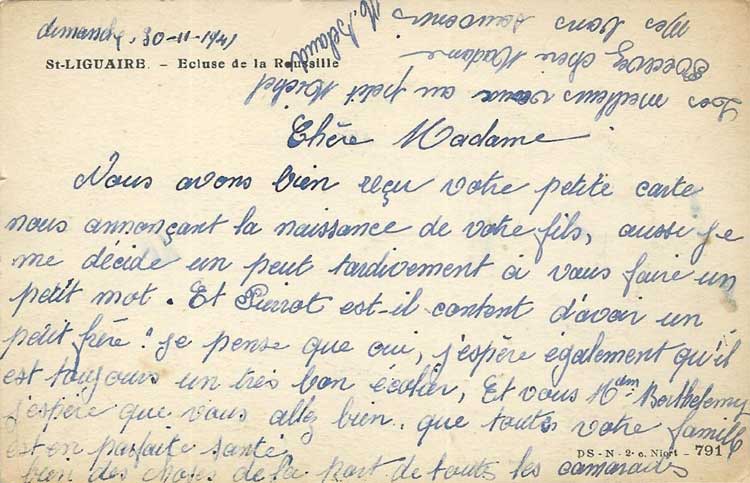 dimanche, 30-11-1941
St-LIGUAIRE. - Ecluse de la Roussille
Chère Madame
Nous avons bien reçu votre petite carte
nous annonçant la naissance de votre fils, aussi je
me décide un peut tardivement à vous faire un
petit mot. Et Pierrot est-il content d'avoir un
petit frère? je pense que oui, j'espère également qu'il
est toujours un très bon écolier, Et vous Mdm Berthelemy
j'espère que vous allez bien, que toute votre famille
est en parfaite santé.
bien des choses de la part de toute les camarades
DS - N - 2 - c. Niort - 791
Nos meilleurs vœux au petit Michel
Recevez chère Madame
mes bons souvenirs